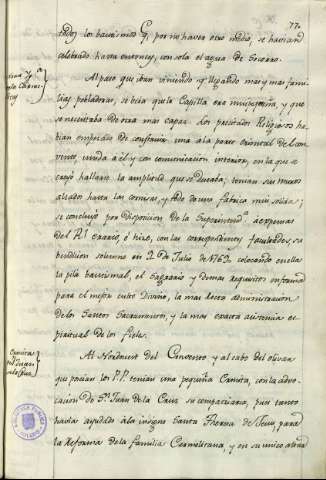 77.
todos los bautismos q.e por no haver otro medio, se havian
celebrado hasta entonces, con sola el agua de Socorro.
Al paso que iban viniendo y llegando mas y mas fami-
lias pobladoras, se veia que la Capilla era mui pequeña, y que
se necesitaba de otra mas capaz. Los precitados Religiosos ha-
bian empezado de construir una a la parte oriental del con-
vento, unida a el y con comunicacion interior, en la que se
creyó hallarse la amplitud que se deseaba; tenian sus muros
alzados hasta las cornisas, y todo de una fabrica mui solida;
se concluyó por disposicion de la Superintend.a a expensas
del R.l erario, é hize, con las correspondientes facultades, su
bendicion solemne en 2 de Julio de 1769 colocando en ella
la pila bautismal, el Sagrario y demas requisitos
para el mejor culto Divino, la mas decente administracion
de los Santos Sacramentos, y la mas exacta asistencia es-
piritual de los fieles.
Ermita de
S.n Juan
de la Cruz
Al Nordouest del Convento y al cabo del olivar
que poseian los P.P. tenian una pequeña Ermita, con la advo-
cacion de S.n Juan de la Cruz su compatriarca, pues tanto
havia ayudado a la insigne Santa Theresa de Jesus, para
la Reforma de la familia Carmelitana, y en su unico altar